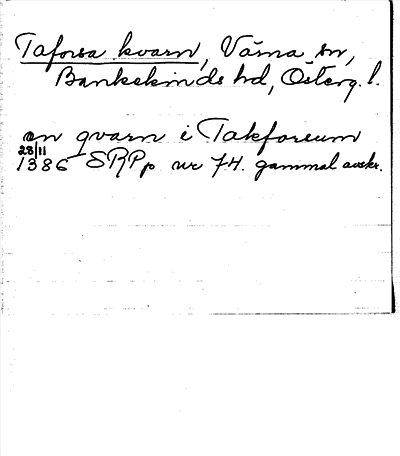 Taforsa kvarn, Värna sn,
Bankekinds hd, Österg. l.
en qvarn i Takforsum
28/11
1386 SRPp nr 74. gammal avskr.